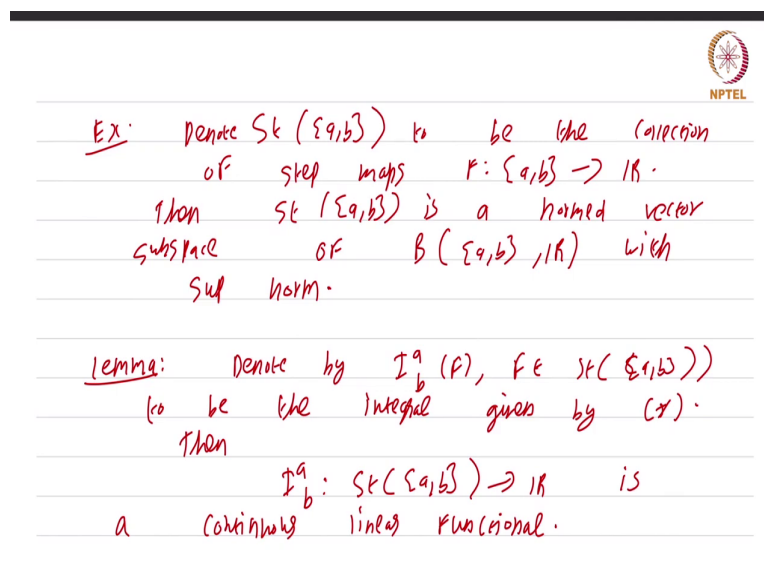 NPTEL
Ex: Denote St ([a,b]) to be the collection
of step maps F: [a,b] → IR.
Then St ([a,b]) is a normed vector
subspace of B ([a,b], IR) with
sup norm.
Lemma: Denote by I^a_b (F), F ∈ St([a,b]))
to be the integral given by (*).
Then
I^a_b : St([a,b]) → IR is
a continuous linear functional.